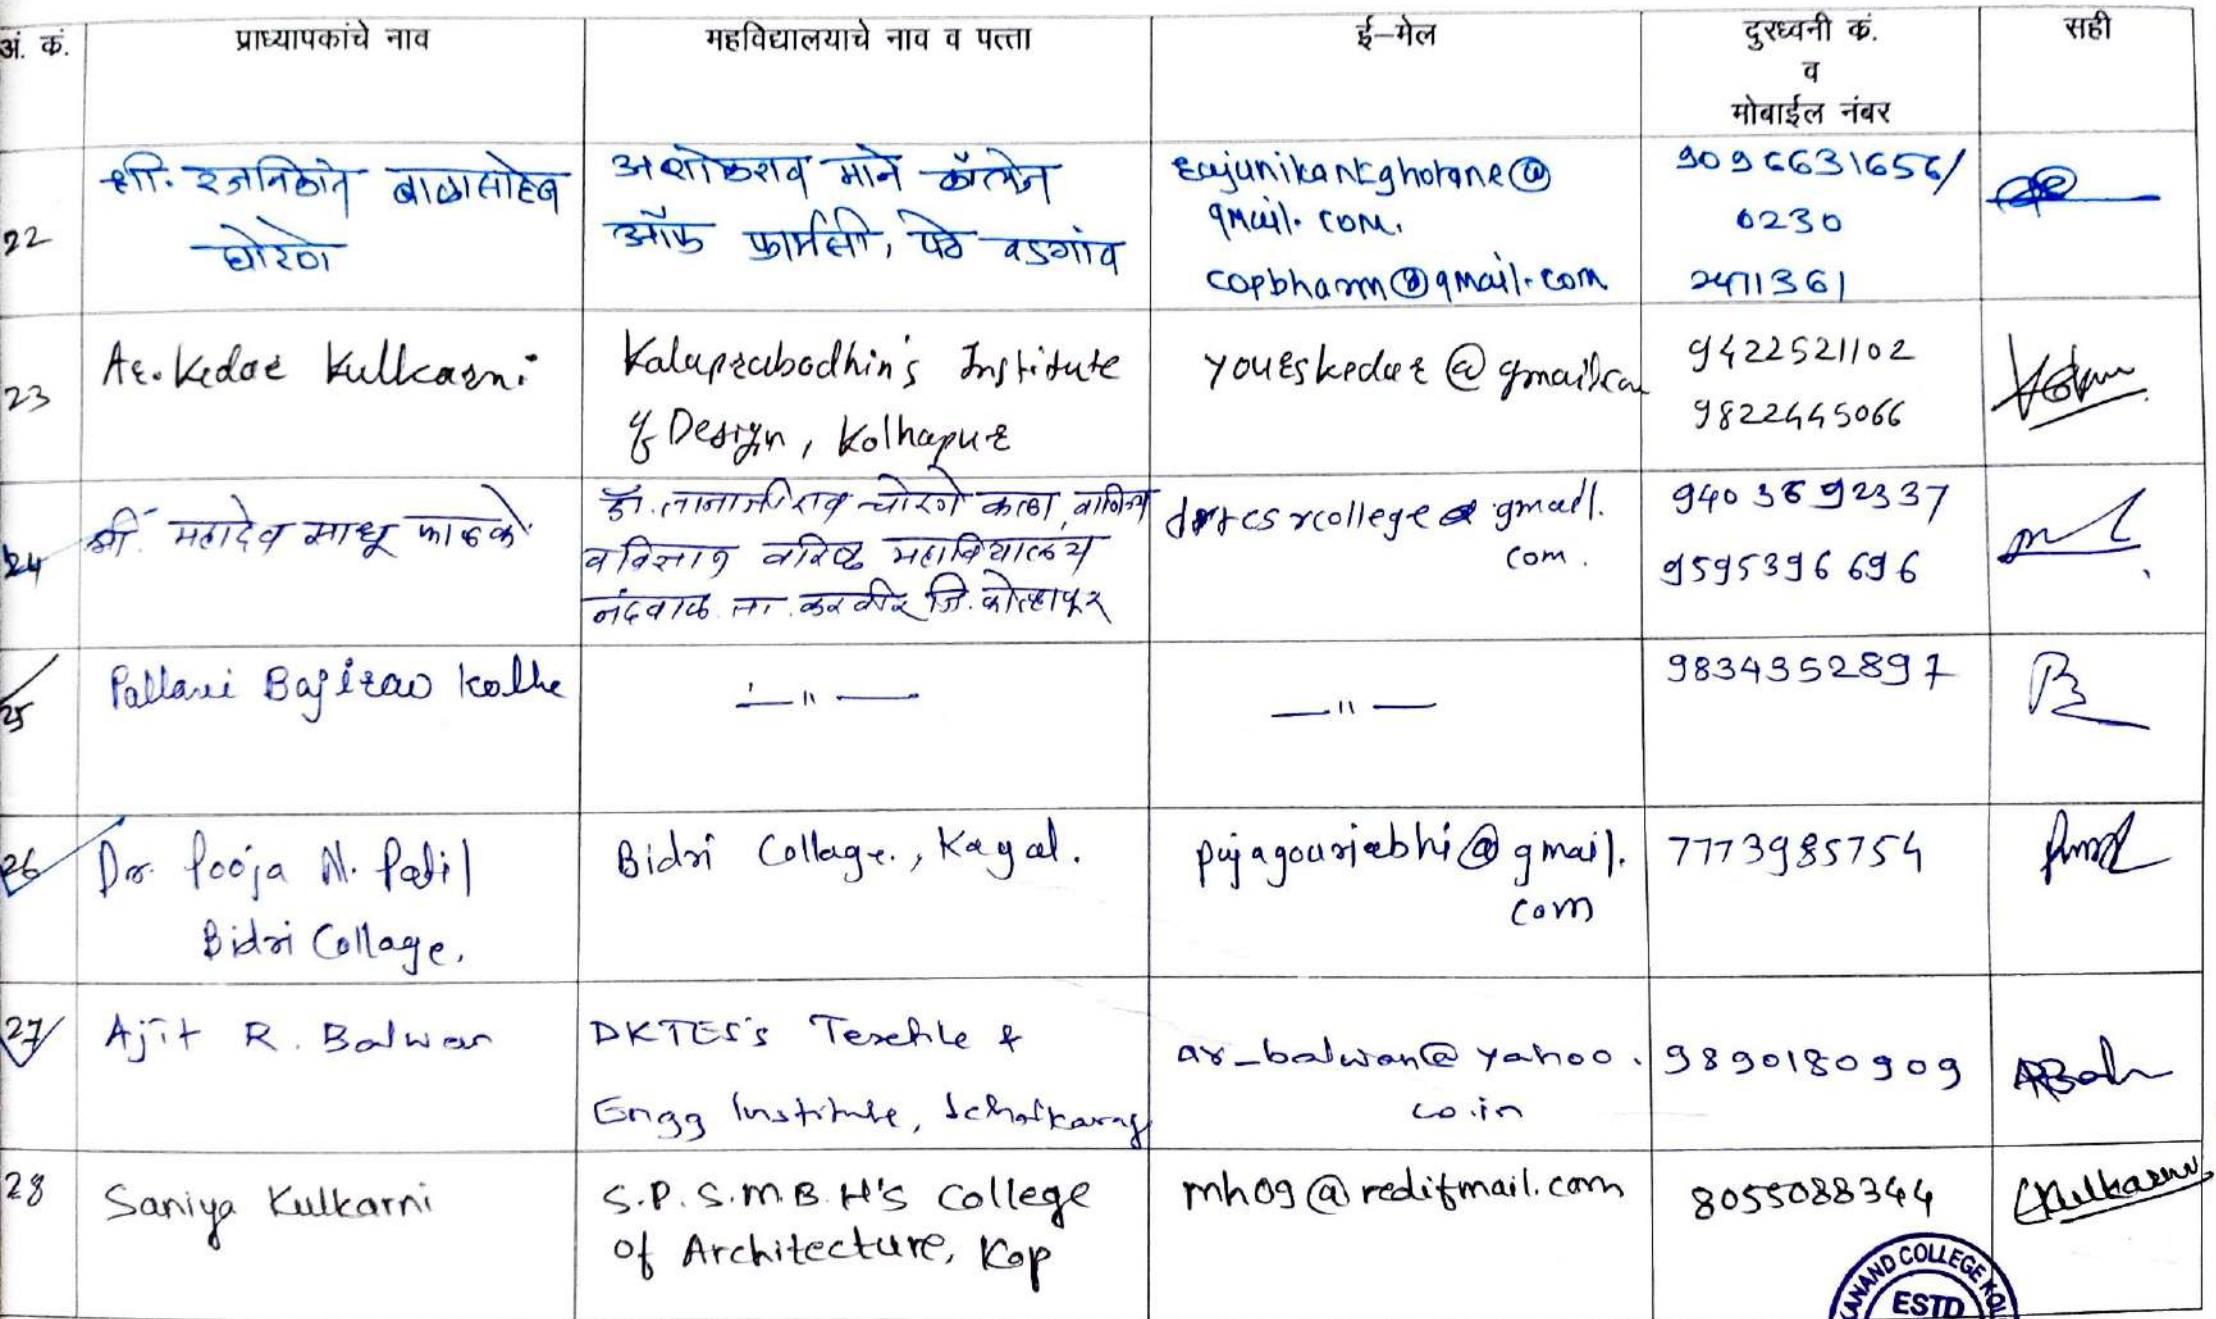 अं. कं.
प्राध्यापकांचे नाव
महविद्यालयाचे नाव व पत्ता
ई-मेल
दुरध्वनी कं.
व
मोबाईल नंबर
सही
22
श्री. रजनिकांत बाळासाहेब
घोरणे
अशोकराव माने कॉलेज
ऑफ फार्मसी, पेठ वडगांव
rajunikantghorane@
gmail.com.
copbharm@gmail.com
9096631656/
0230
2471361
23
Ar. Kedar Kulkarni
Kalaprabodhin's Institute
of Design, Kolhapur
yourskedar@gmail.com
9422521102
9822445066
24
श्री. महादेव साधू फाळके
डॉ. तानाजीराव चोरगे कला, वाणिज्य
व विज्ञान वरिष्ठ महाविद्यालय
नंदवाळ. ता. करवीर जि. कोल्हापूर
gmail.
com.
9403692337
9595396696
25
Pallavi Bajirao Kolhe
— " —
— " —
9834352897
26
Dr. Pooja N. Patil
Bidri Collage,
Bidri Collage., Kagal.
pujagouriabhi@gmail.
com
7773985754
27
Ajit R. Balwan
DKTES's Textile &
Engg Institute, Ichalkaranji
ar_balwan@yahoo.
co.in
9890180909
28
Saniya Kulkarni
S.P.S.M.B.H's College
of Architecture, Kop
mh09@redifmail.com
8055088344
SKulkarni
ANAND COLLEGE KOL
ESTD